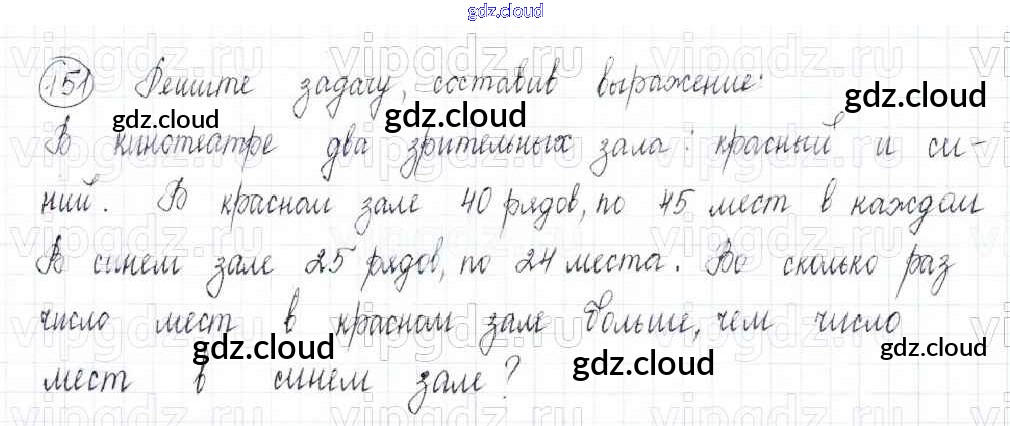 gdz.cloud
151 Решите задачу, составив выражение:
В кинотеатре два зрительных зала: красный и си-
ний. В красном зале 40 рядов, по 45 мест в каждом
В синем зале 25 рядов, по 24 места. Во сколько раз
число мест в красном зале больше, чем число
мест в синем зале?